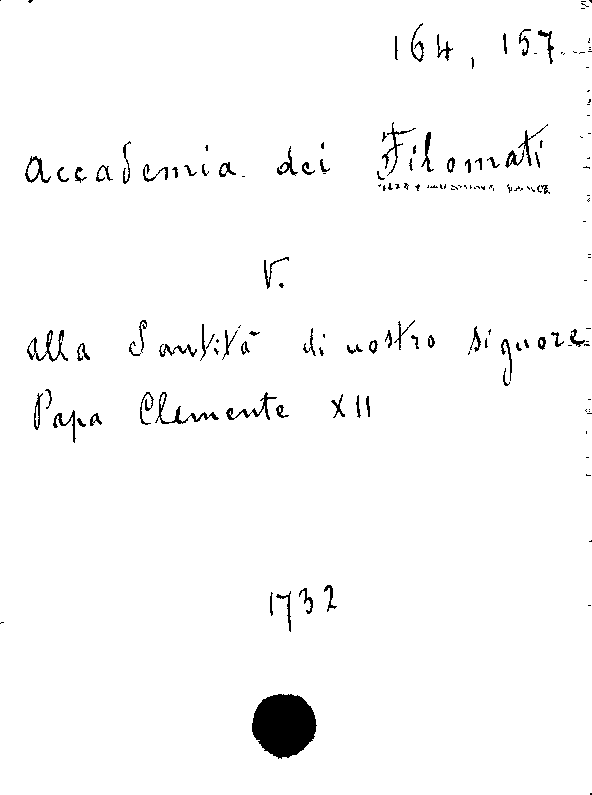 164, 157
Accademia dei Filomati
V.
alla Santità di nostro signore
Papa Clemente XII
1732